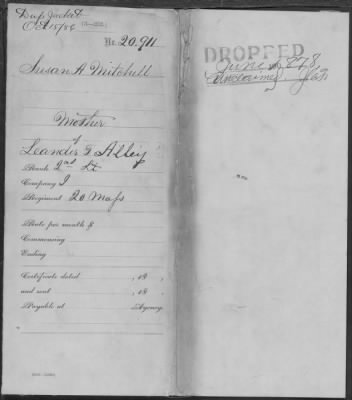 Dup Jacket
Oct 15/86
No. 20.911
Susan A. Mitchell
Mother
of
Leander F Alley
Rank 2nd Lt
Company I
Regiment 20 Mass
Rate per month $
Commencing
Ending
Certificate dated , 18 .
and sent , 18 .
Payable at Agency.
DROPPED
June 1878
Unclaimed